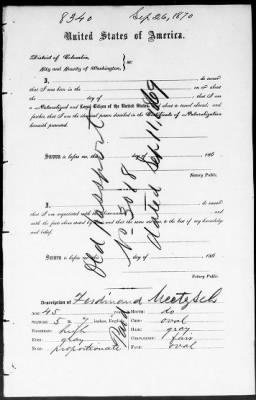 8340 Sep 26, 1870
United States of America.
District of Columbia,
City and County of Washington,
I, do swear
that I was born in the on or about
the day of
a Naturalized and Loyal Citizen of the United States, and about to travel abroad; and
further that I am the identical person described in the Certificate of Naturalization
herewith presented.
Sworn to before me, this day of 186
Notary Public.
I, do swear
that I am acquainted with the
with the facts above stated by and that the same are true, to the best of my knowledge
and belief.
Sworn to before me, this day of 186
Notary Public.
Old passport
No 3018
dated Sep 11, 1869
Description of Ferdinand
Age: 45 Mouth: do
Stature: 5 " 7 inches, English Chin: oval
Forehead: high Hair: gray
Eyes: gray Complexion: fair
Nose: proportionate Face: oval
Paid